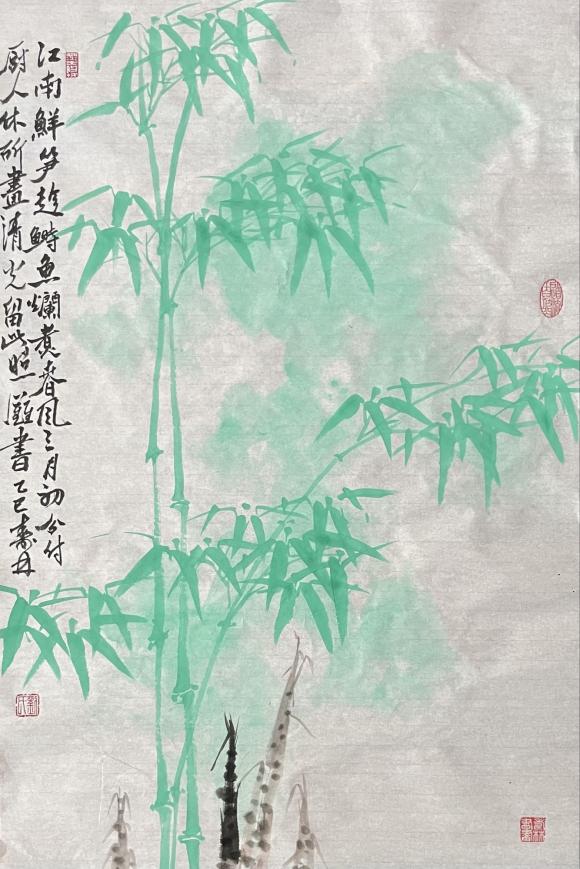 江南鮮笋趁鰣魚爛煮春風三月初分付
厨人休斫盡清光留此照攤書乙巳壽
劉氏